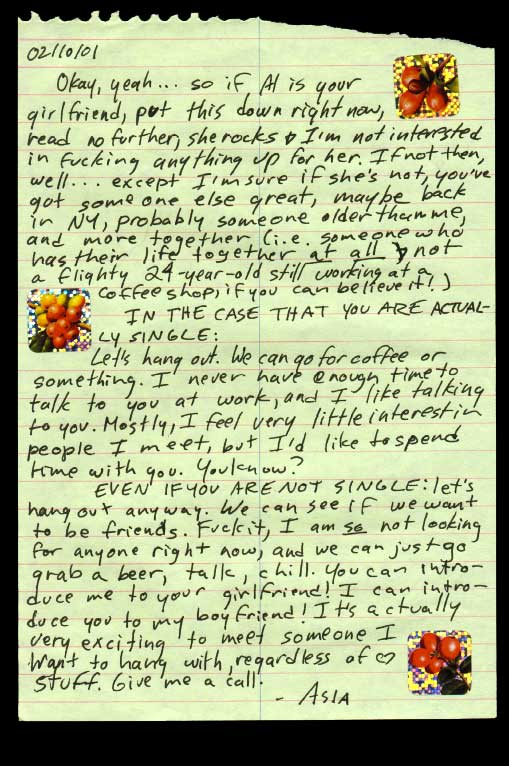 02/10/01
Okay, yeah... so if Al is your
girlfriend, put this down right now,
read no further, she rocks & I'm not interested
in fucking anything up for her. If not then,
well... except I'm sure if she's not, you've
got some one else great, maybe back
in NY, probably someone older than me,
and more together (i.e. someone who
has their life together at all & not
a flighty 24-year-old still working at a
coffee shop, if you can believe it!)
IN THE CASE THAT YOU ARE ACTUAL-
LY SINGLE:
Let's hang out. We can go for coffee or
something. I never have enough time to
talk to you at work, and I like talking
to you. Mostly, I feel very little interest in
people I meet, but I'd like to spend
time with you. You know?
EVEN IF YOU ARE NOT SINGLE: let's
hang out anyway. We can see if we want
to be friends. Fuck it, I am so not looking
for anyone right now, and we can just go
grab a beer, talk, chill. You can intro-
duce me to your girlfriend! I can intro-
duce you to my boyfriend! It's actually
very exciting to meet someone I
want to hang with, regardless of ♡
stuff. Give me a call.
- ASIA